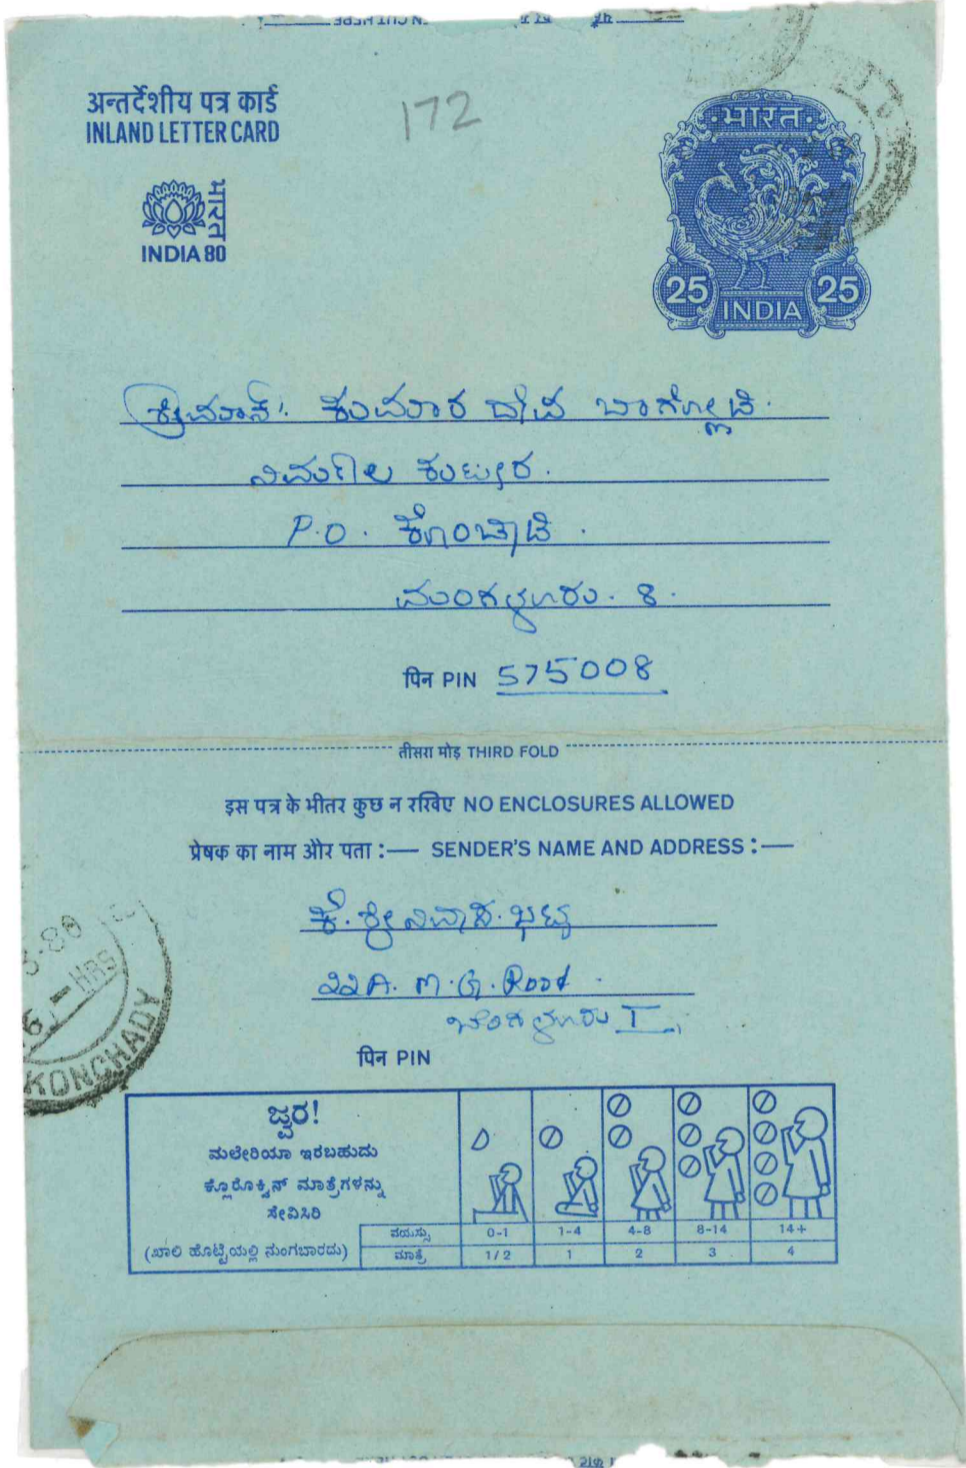 अन्तर्देशीय पत्र कार्ड
INLAND LETTER CARD
172
भारत
INDIA 80
भारत
25 INDIA 25
ಶ್ರೀಮಾನ್. ಕುಮಾರ ದೇವ ಬಾಗ್ಲೋಡಿ.
ನಿರ್ಮಲ ಕುಟೀರ.
P.O. ಕೊಂಚಾಡಿ.
ಮಂಗಳೂರು. 8.
पिन PIN 575008
तीसरा मोड़ THIRD FOLD
इस पत्र के भीतर कुछ न रखिए NO ENCLOSURES ALLOWED
प्रेषक का नाम और पता :— SENDER'S NAME AND ADDRESS :—
ಕೆ. ಶ್ರೀನಿವಾಸ. ಭಟ್ಟ
22A. M.G. Road.
ಬೆಂಗಳೂರು I
पिन PIN
HRS
KONCHADY
ಜ್ವರ!
ಮಲೇರಿಯಾ ಇರಬಹುದು
ಕ್ಲೊರೊಕ್ವಿನ್ ಮಾತ್ರೆಗಳನ್ನು
ಸೇವಿಸಿರಿ
(ಖಾಲಿ ಹೊಟ್ಟೆಯಲ್ಲಿ ನುಂಗಬಾರದು)
ವಯಸ್ಸು 0-1 1-4 4-8 8-14 14+
ಮಾತ್ರೆ 1/2 1 2 3 4